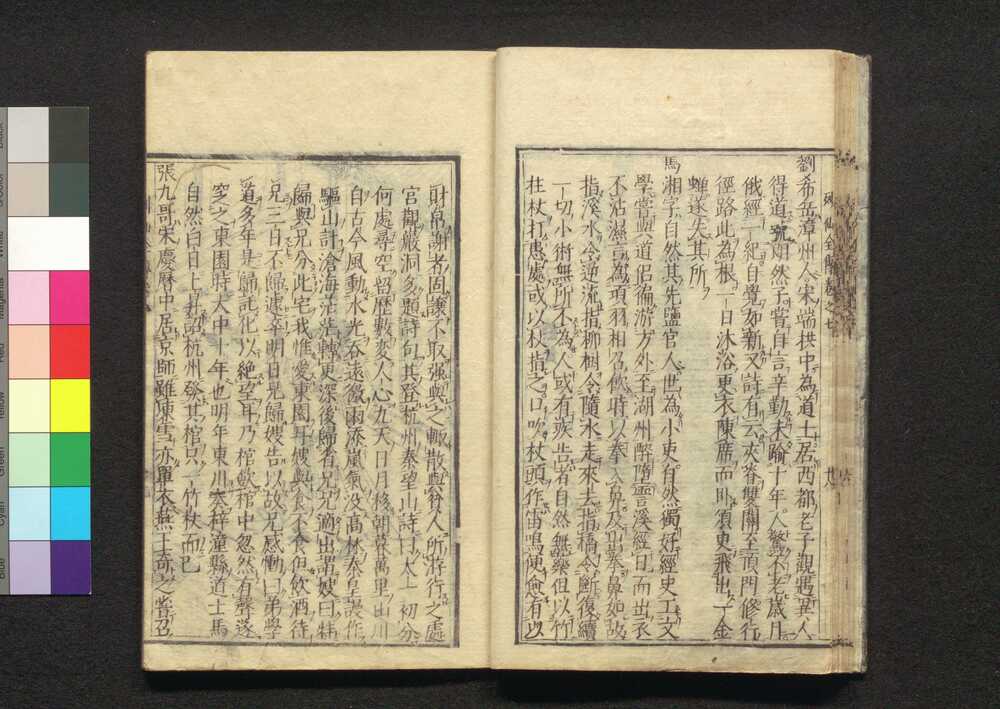 劉希岳漳州人宋端拱中為道士居西都老子觀遇異人
得道號朗然子嘗自言辛勤未踰十年人驚不老歲月
俄經一紀自覺如新又詩有云夾脊雙關至頂門修行
徑路此為根一日沐浴更衣陳席而臥須臾飛出一金
蟬遂失其所
馬湘字自然其先鹽官人世為小吏自然獨好經史工文
學嘗與道侶徧游方外至湖州醉墮霅溪經日而出衣
不沾濕言為項羽相召飲時以拳入鼻及出拳鼻如故
指溪水令逆流指柳樹令隨水走來去指橋令斷復續
一切小術無所不為人或有疾告者自然無藥但以竹
柱杖打患處或以杖指之口吹杖頭作雷鳴便愈有以
財帛謝者固讓不取强與之輒散與貧人所游行之處
宮觀巖洞多題詩句其登杭州秦望山詩曰太一初分
何處尋空留歷數変人心九天日月移朝暮萬里山川
自古今風動水光吞遠徼雨添嵐氣没高林秦皇謾作
驅山計滄海茫茫轉更深後歸省兄兄適出謂嫂曰特
歸與兄分此宅我惟愛東園耳嫂與食不食但飲酒待
兄三日不歸遽卒明日兄歸嫂告以故兄感慟曰弟學
道多年是歸託化以絶望耳乃棺歛棺中忽然有聲遂
窆之東園時大中十年也明年東川奏梓潼縣道士馬
自然白日上昇詔杭州發其棺只一竹杖而已
張九哥宋慶曆中居京師雖陳雪亦單衣燕王奇之嘗召
Black
White
Magenta
Red
Yellow
Green
Cyan
Blue